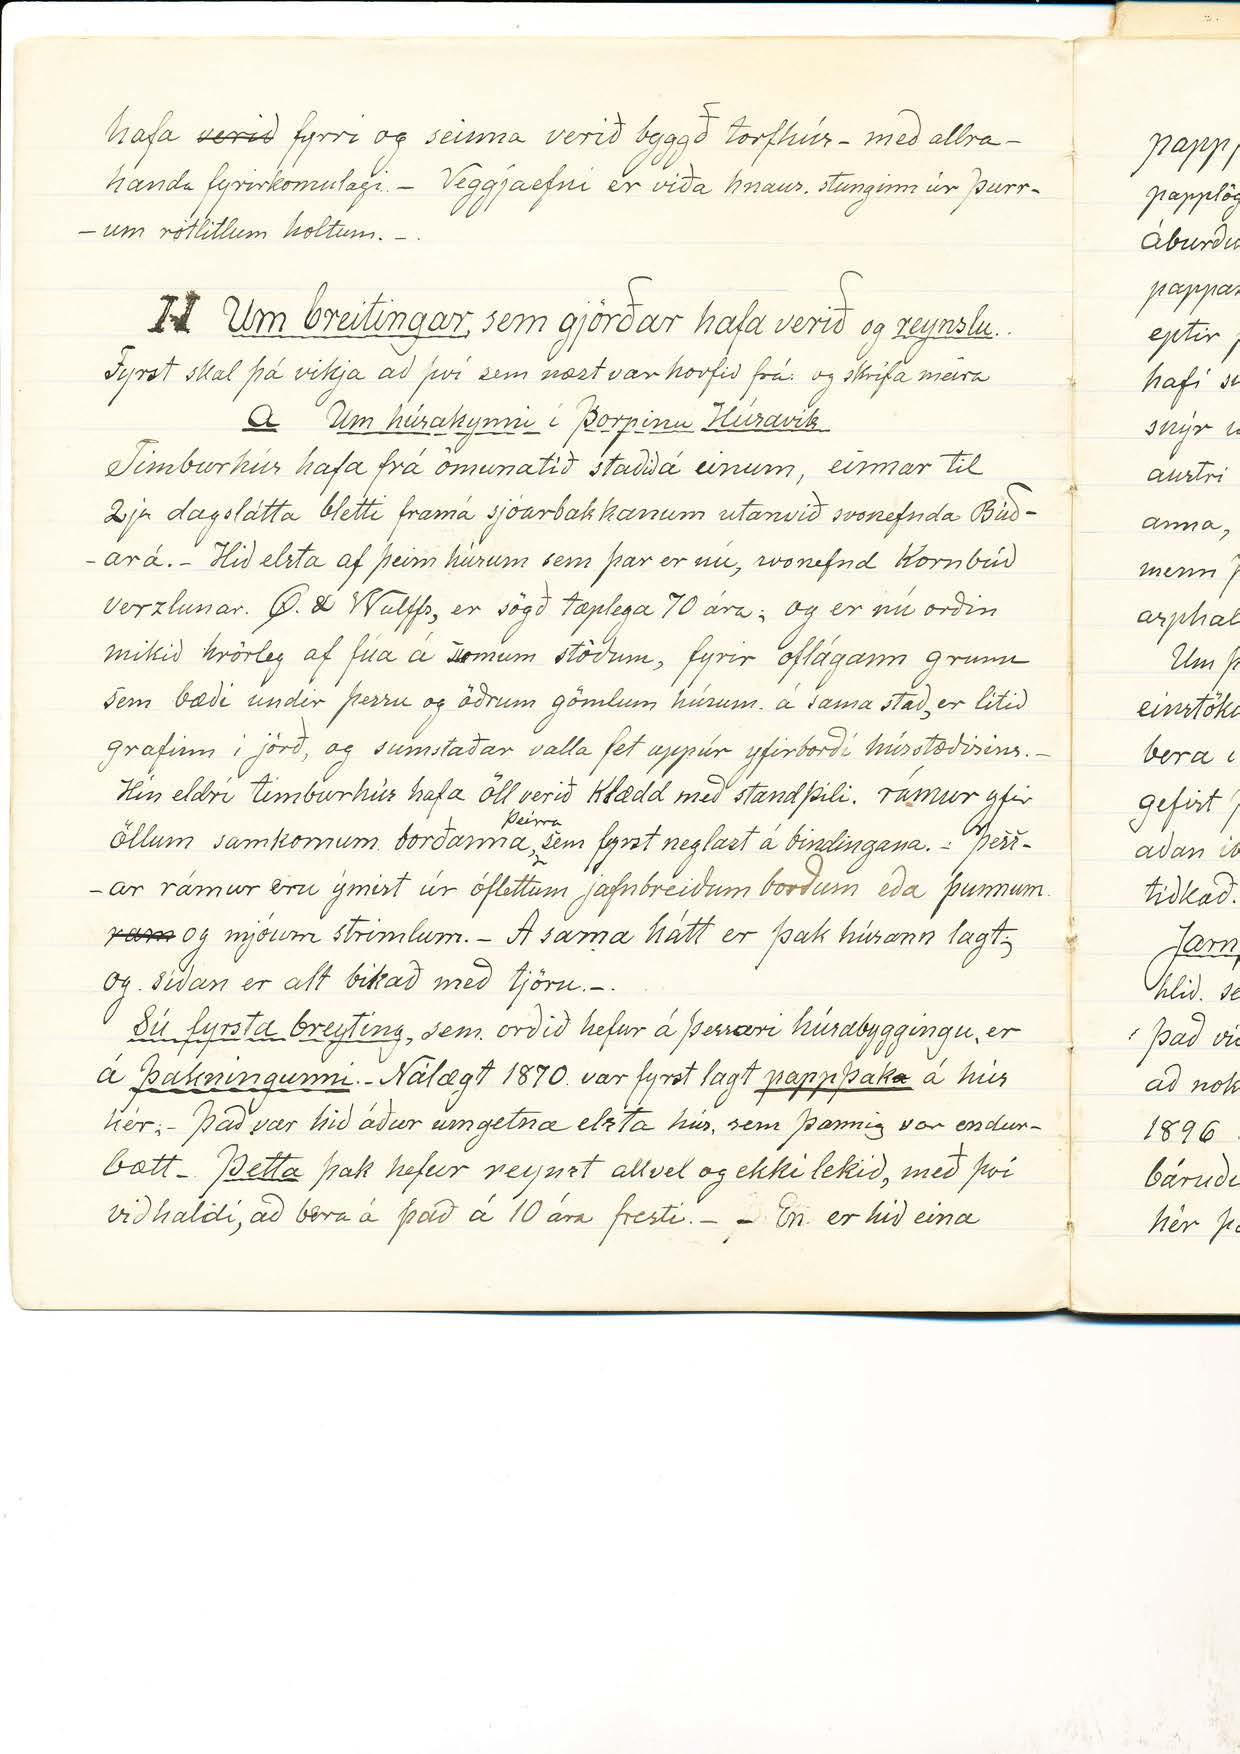 hafa verið fyrri og seinna verið byggð torfhús - með allra-
handa fyrirkomulagi. - Veggjaefni er víða hnaus. stunginn úr þurr-
-um rótlitlum holtum. -.
II Um breitingar, sem gjörðar hafa verið og reynslu..
Fyrst skal þá vikja að því sem næst var horfið frá. og skrifa meira
A Um húsakynni í Þorpinu Húsavík
Timburhús hafa frá ómunatíð staðið á einum, einnar til
2ja dagslátta bletti framá sjóarbakkanum utanvið svonefnda Búð-
-ará. - Hið elsta af þeim húsum sem þar er nú, svonefnd Kornbúð
verzlunar. Ø. & Wulffs, er sögð tæplega 70 ára; og er nú orðin
mikið hrörleg af fúa á sömum stöðum, fyrir oflágann grunn
sem bæði undir þessu og öðrum gömlum húsum. á sama stað, er lítið
grafinn í jörð, og sumstaðar valla fet uppúr yfirborði hússtæðisins. -
Hin eldri timburhús hafa öll verið klædd með standþili. rámur yfir
öllum samkomum borðanna, þeirra sem fyrst neglast á bindingana. - Þess-
-ar rámur eru ýmist úr óflettum jafnbreiðum borðum eða þunnum
ram og mjóum strimlum. - A sama hátt er þak húsann lagt;
og síðan er alt bikað með tjöru. -.
Sú fyrsta breyting, sem orðið hefur á þessari húsabyggingu, er
á þakningunni. - Nálægt 1870. var fyrst lagt pappþak á hús
hér; - Það var hið áður umgetna elsta hús, sem þannig var endur-
bætt - Þetta þak hefur reynst allvel og ekki lekið, með því
viðhaldi, að bera á það á 10 ára fresti. - - En er hið eina
papp
papplög
áburðu
pappas
eptir
hafi
snýr
austri
anna,
menn
asphal
Um
einstöku
bera
gefist
aðan
tíðkað.
Jarn
hlið. se
Það
að nok
1896
báruðu
hér